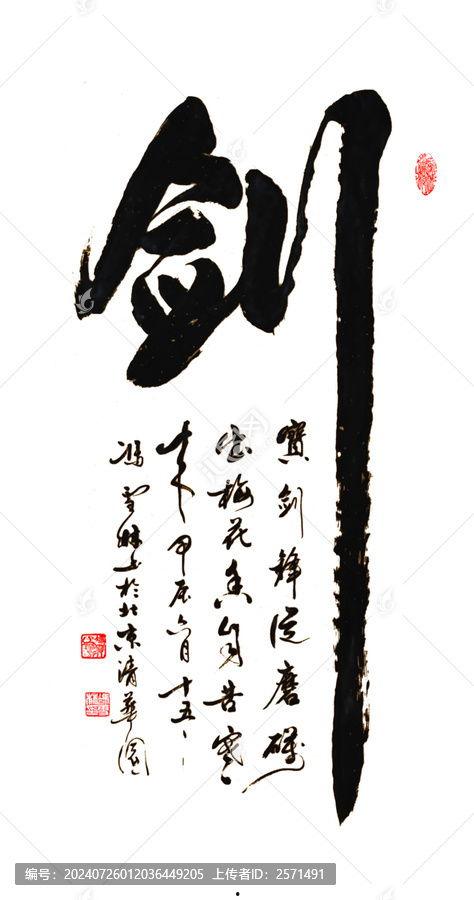 剑
寳剑锋从磨砺
出梅花香自苦寒
来甲辰六月十五
冯雪林书于北京清华园
编号：20240726012036449205 上传者ID：2571491